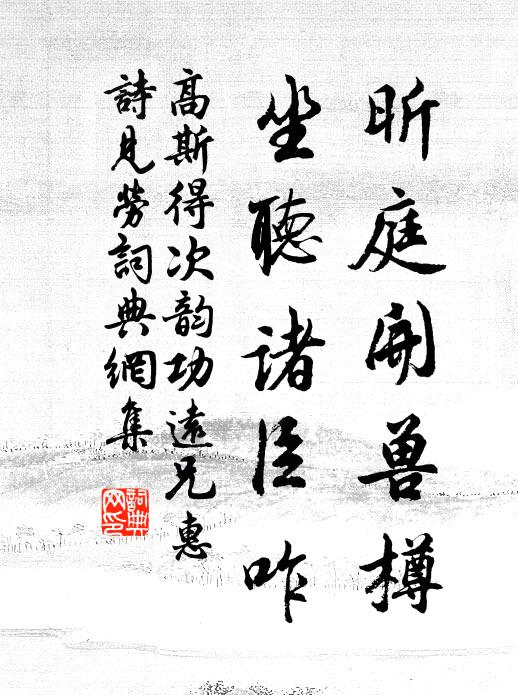 昕庭開兽樽
坐聽諸臣咋
高斯得次韵功遠兄惠
詩見勞詞典網集
詞典網印